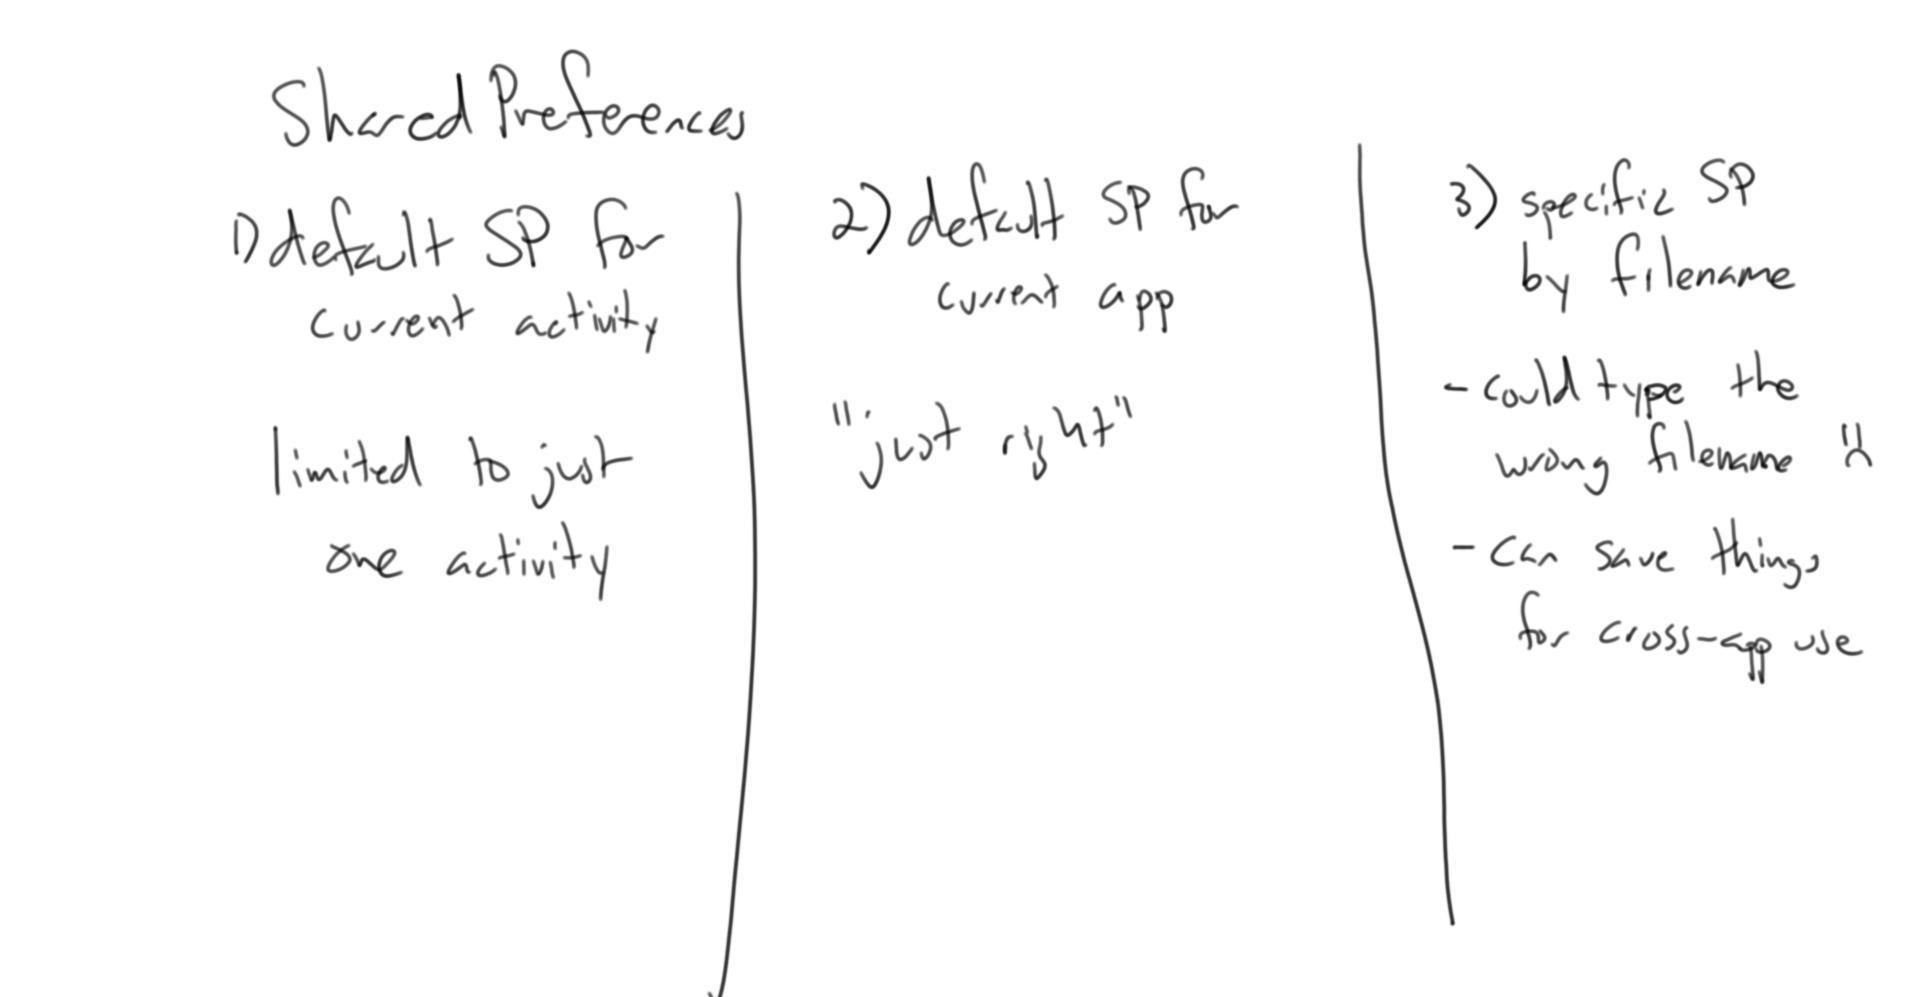 SharedPreferences
1) default SP for
current activity
limited to just
one activity
2) default SP for
current app
"just right"
3) specific SP
by filename
- could type the
wrong filename :(
- can save things
for cross-app use